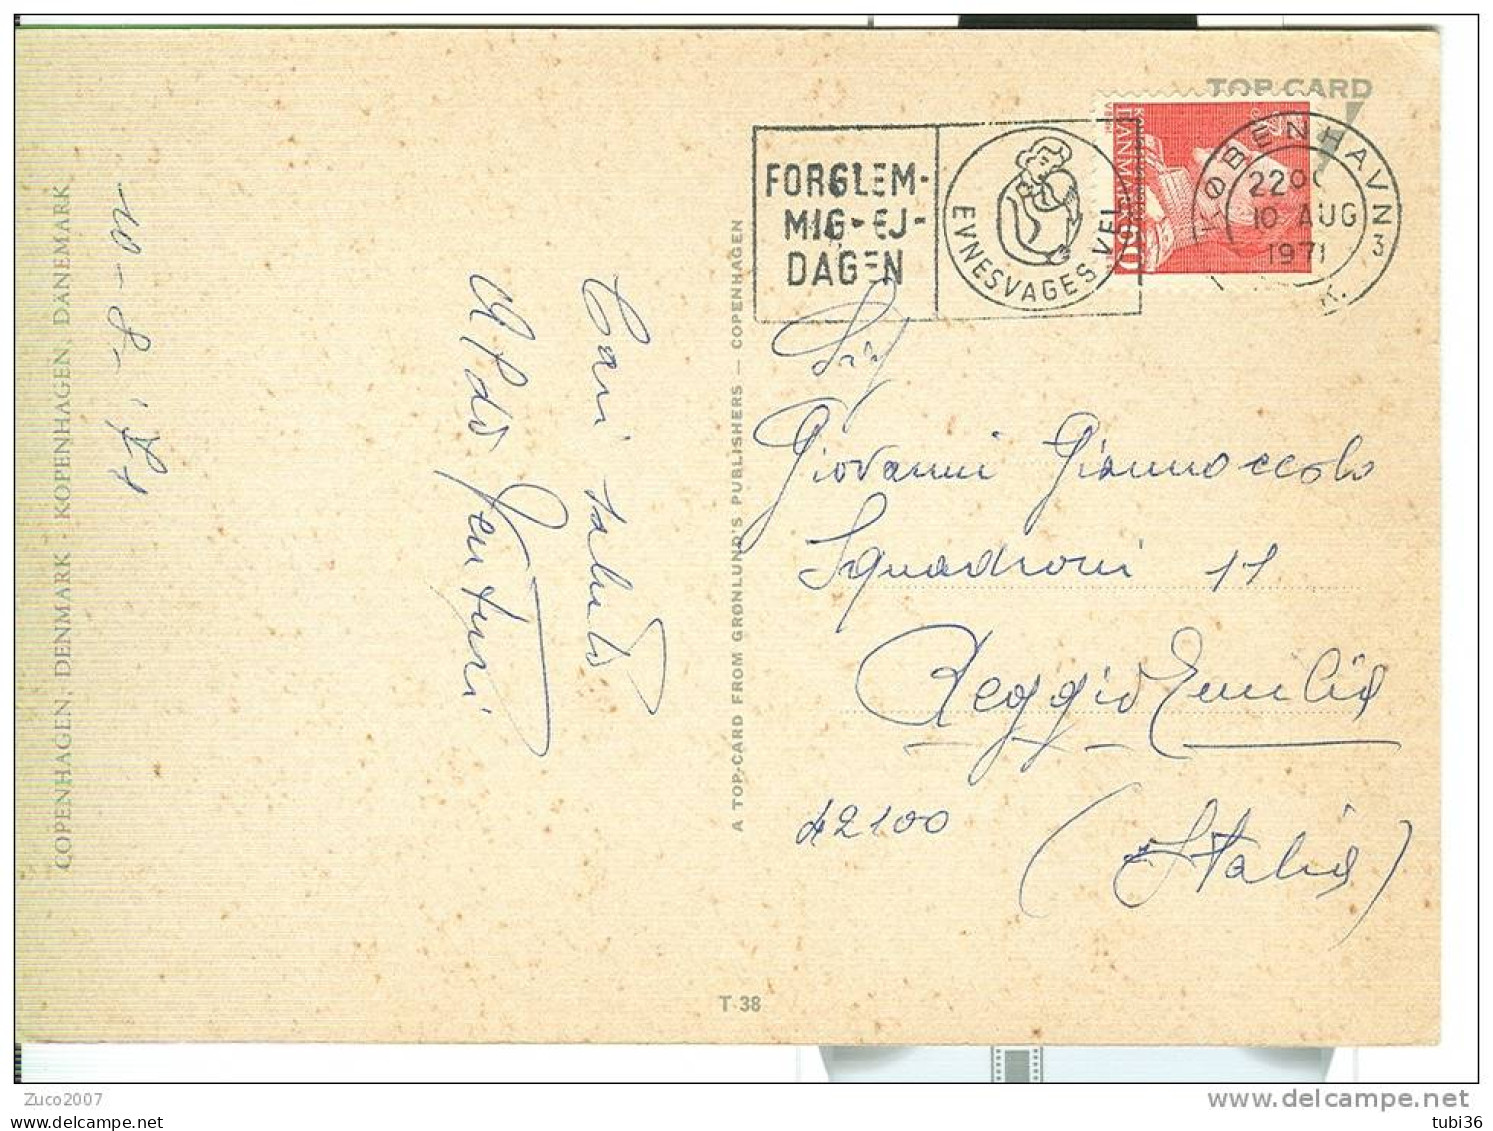 TOP CARD
FORGLEM-
MIG-EJ-
DAGEN
EVNESVAGES VEL
DANMARK
KØBENHAVN
3
10 AUG
1971
K.
Sig
Giovanni Giannoccolo
Squadroni 11
Reggio Emilia
42100
(Italia)
Cari saluti
Aldo Venturi
10-8-'71
COPENHAGEN, DENMARK - KOPENHAGEN, DÄNEMARK
A TOP-CARD FROM GRØNLUND'S PUBLISHERS — COPENHAGEN
T 38
Zuco2007
www.delcampe.net
tubi36